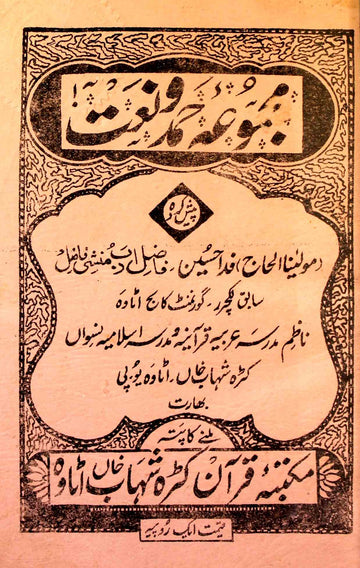 مجموعہ حمد و نعت
پیش کردہ
(مولینا الحاج) فدا حسین۔ فاضل ادب منشی فاضل
سابق لکچرر۔ گورنمنٹ کالج اٹاوہ
ناظم مدرسہ عربیہ قرآنیہ و مدرسہ اسلامیہ نسواں
کٹرہ شہاب خاں۔ اٹاوہ یو پی
بھارت
ملنے کا پتہ
مکتبۂ قرآن کٹرہ شہاب خاں اٹاوہ
قیمت ایک روپیہ